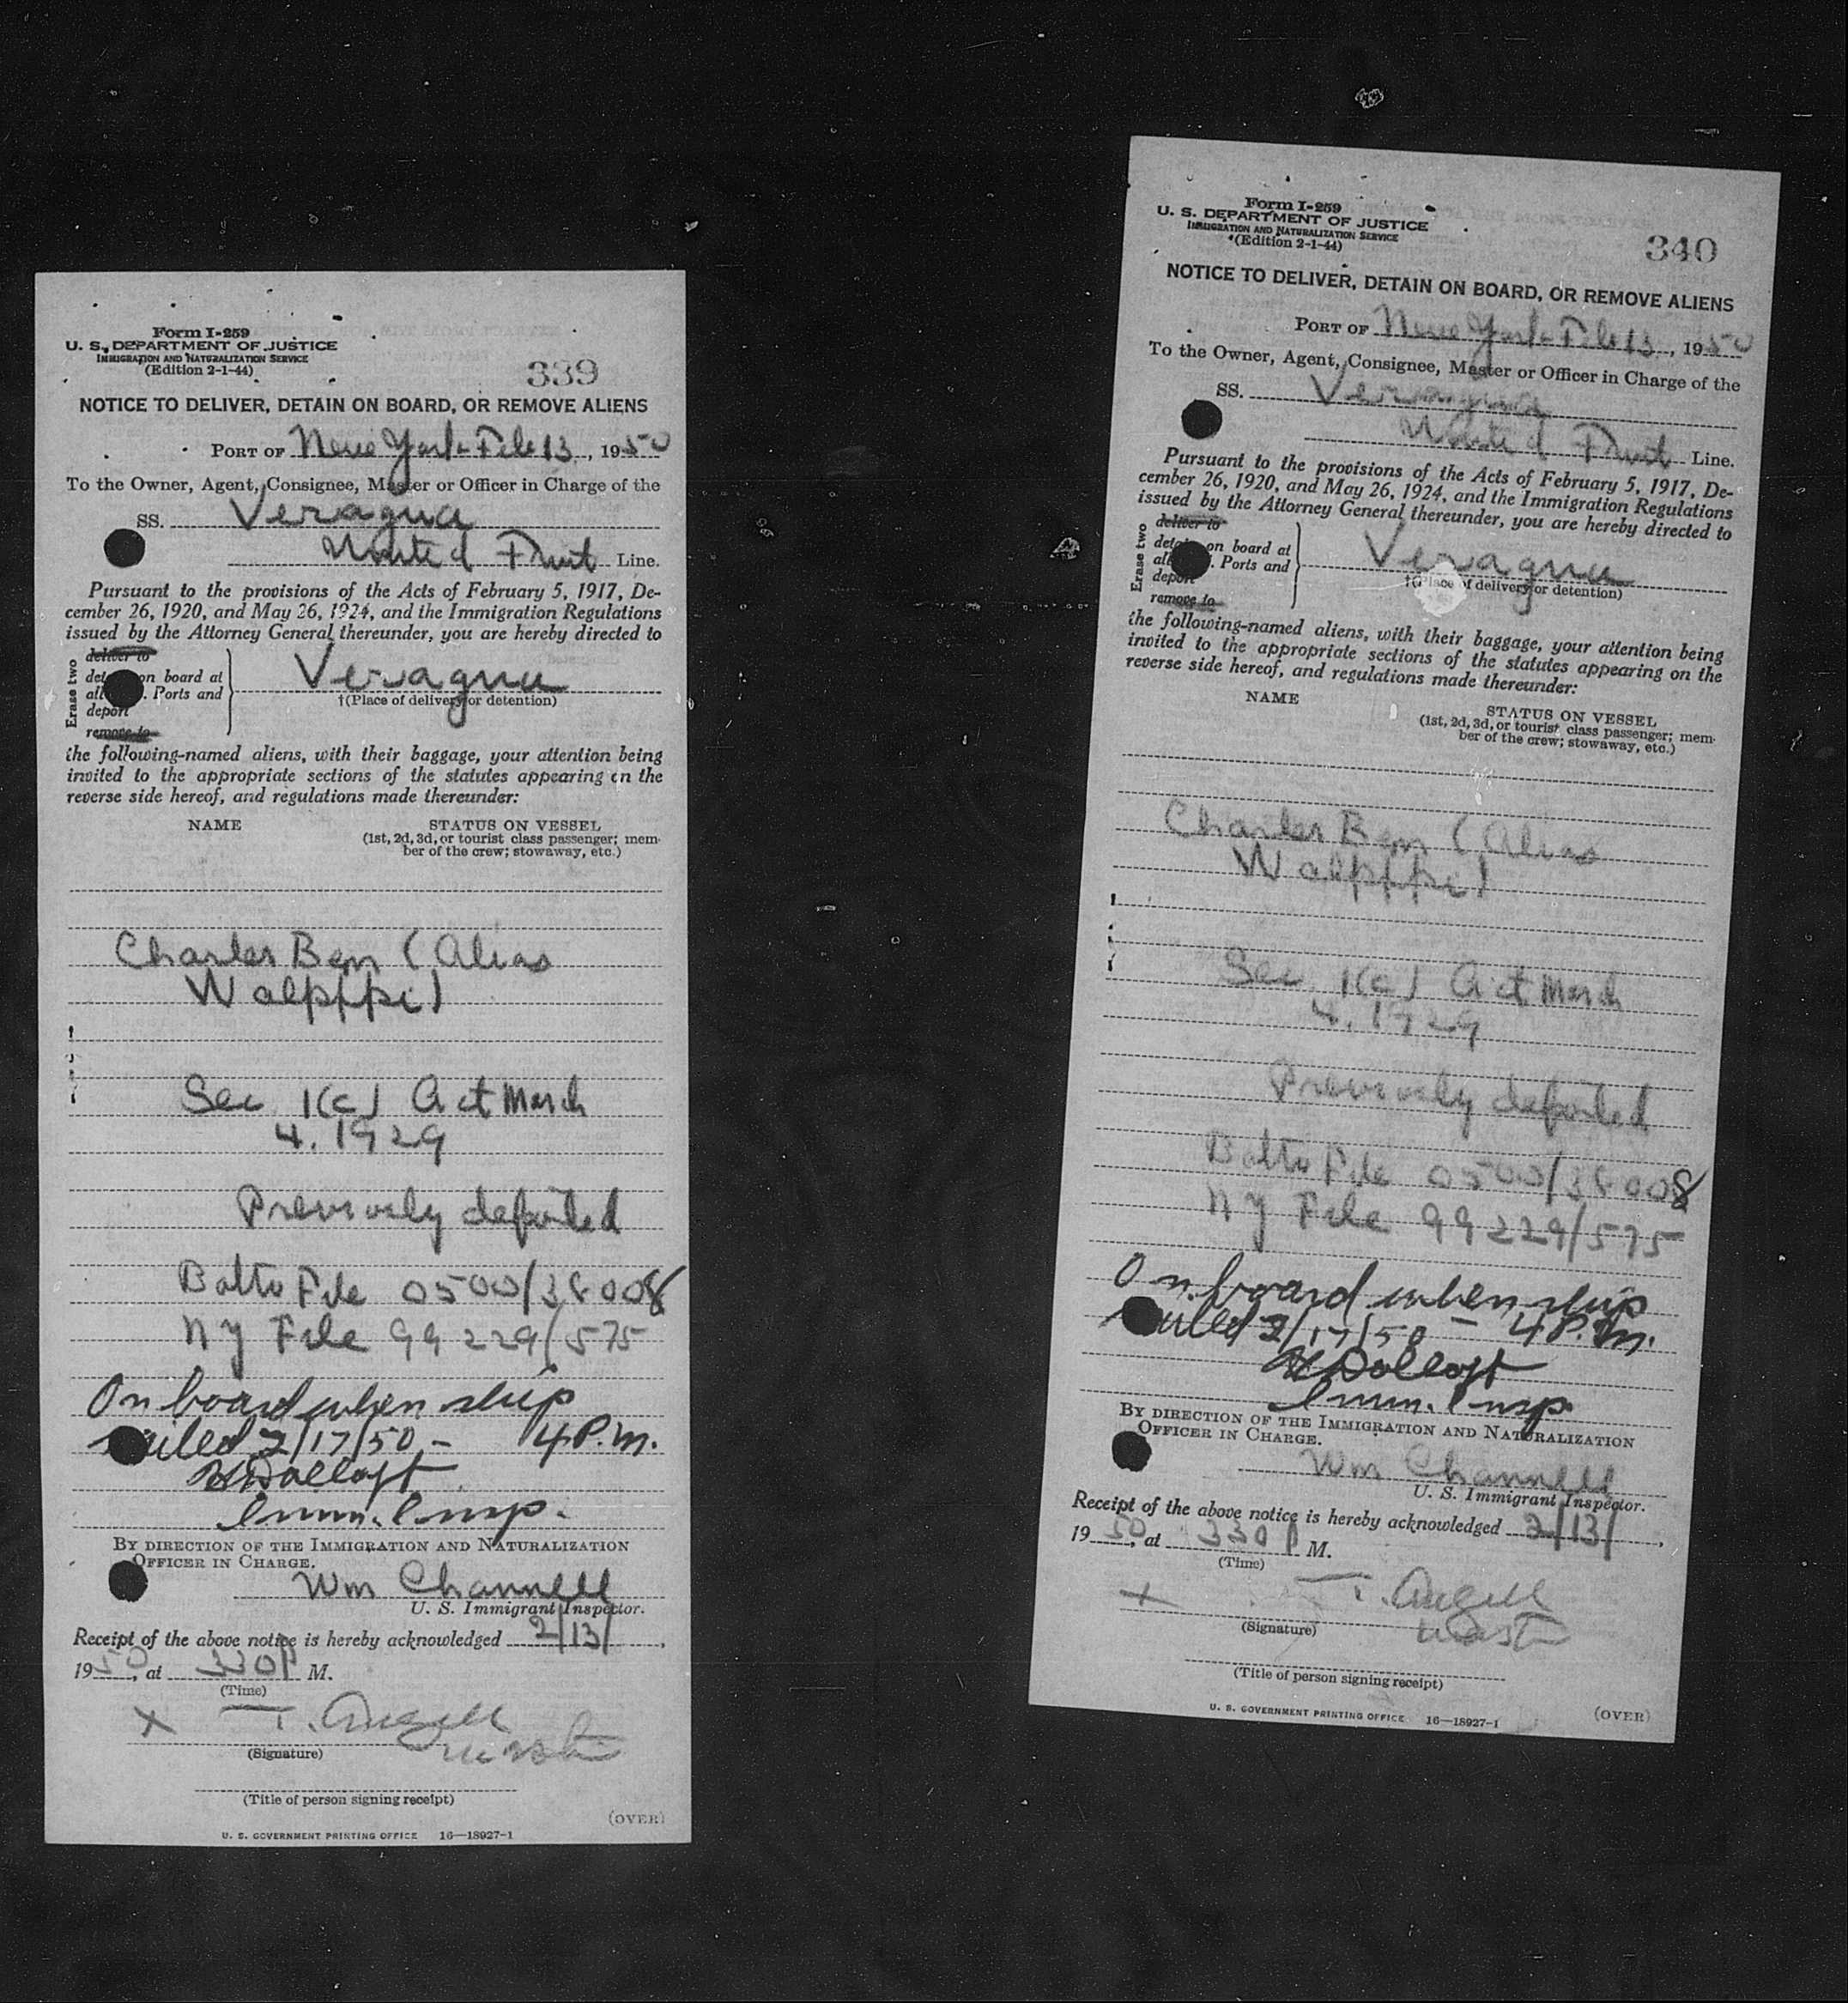 Form I-259
U. S. DEPARTMENT OF JUSTICE
IMMIGRATION AND NATURALIZATION SERVICE
(Edition 2-1-44)
339
NOTICE TO DELIVER, DETAIN ON BOARD, OR REMOVE ALIENS
PORT OF New York Feb 13, 1950
To the Owner, Agent, Consignee, Master or Officer in Charge of the
SS. Veragua
United Fruit Line.
Pursuant to the provisions of the Acts of February 5, 1917, De-
cember 26, 1920, and May 26, 1924, and the Immigration Regulations
issued by the Attorney General thereunder, you are hereby directed to
Erase two
deliver to
on board at
Ports and
deport
remove to
Veragua
†(Place of delivery or detention)
the following-named aliens, with their baggage, your attention being
invited to the appropriate sections of the statutes appearing on the
reverse side hereof, and regulations made thereunder:
NAME STATUS ON VESSEL
(1st, 2d, 3d, or tourist class passenger; mem-
ber of the crew; stowaway, etc.)
Charles Ben (Alias
Sec 1(c) Act March
4, 1929
Previously deported
Balto File 0500/38008
NY File 99229/575
On board when ship
sailed 2/17/50 - 4 P.M.
Imm. Insp.
BY DIRECTION OF THE IMMIGRATION AND NATURALIZATION
OFFICER IN CHARGE.
Wm Channell
U. S. Immigrant Inspector.
Receipt of the above notice is hereby acknowledged 2/13/,
1950, at 330 P M.
(Time)
X T. Angell
Master
(Signature)
(Title of person signing receipt)
(OVER)
U. S. GOVERNMENT PRINTING OFFICE 16—18927-1
Form I-259
U. S. DEPARTMENT OF JUSTICE
IMMIGRATION AND NATURALIZATION SERVICE
(Edition 2-1-44)
340
NOTICE TO DELIVER, DETAIN ON BOARD, OR REMOVE ALIENS
PORT OF New York Feb 13, 1950
To the Owner, Agent, Consignee, Master or Officer in Charge of the
SS. Veragua
United Fruit Line.
Pursuant to the provisions of the Acts of February 5, 1917, De-
cember 26, 1920, and May 26, 1924, and the Immigration Regulations
issued by the Attorney General thereunder, you are hereby directed to
Erase two
deliver to
on board at
Ports and
deport
remove to
Veragua
†(Place of delivery or detention)
the following-named aliens, with their baggage, your attention being
invited to the appropriate sections of the statutes appearing on the
reverse side hereof, and regulations made thereunder:
NAME STATUS ON VESSEL
(1st, 2d, 3d, or tourist class passenger; mem-
ber of the crew; stowaway, etc.)
Charles Ben (Alias
Sec 1(c) Act March
4, 1929
Previously deported
Balto File 0500/38008
NY File 99229/575
On board when ship
sailed 2/17/50 - 4 P.M.
Imm. Insp.
BY DIRECTION OF THE IMMIGRATION AND NATURALIZATION
OFFICER IN CHARGE.
Wm Channell
U. S. Immigrant Inspector.
Receipt of the above notice is hereby acknowledged 2/13/,
1950, at 330 P M.
(Time)
X T. Angell
(Signature) Master
(Title of person signing receipt)
U. S. GOVERNMENT PRINTING OFFICE 16—18927-1 (OVER)